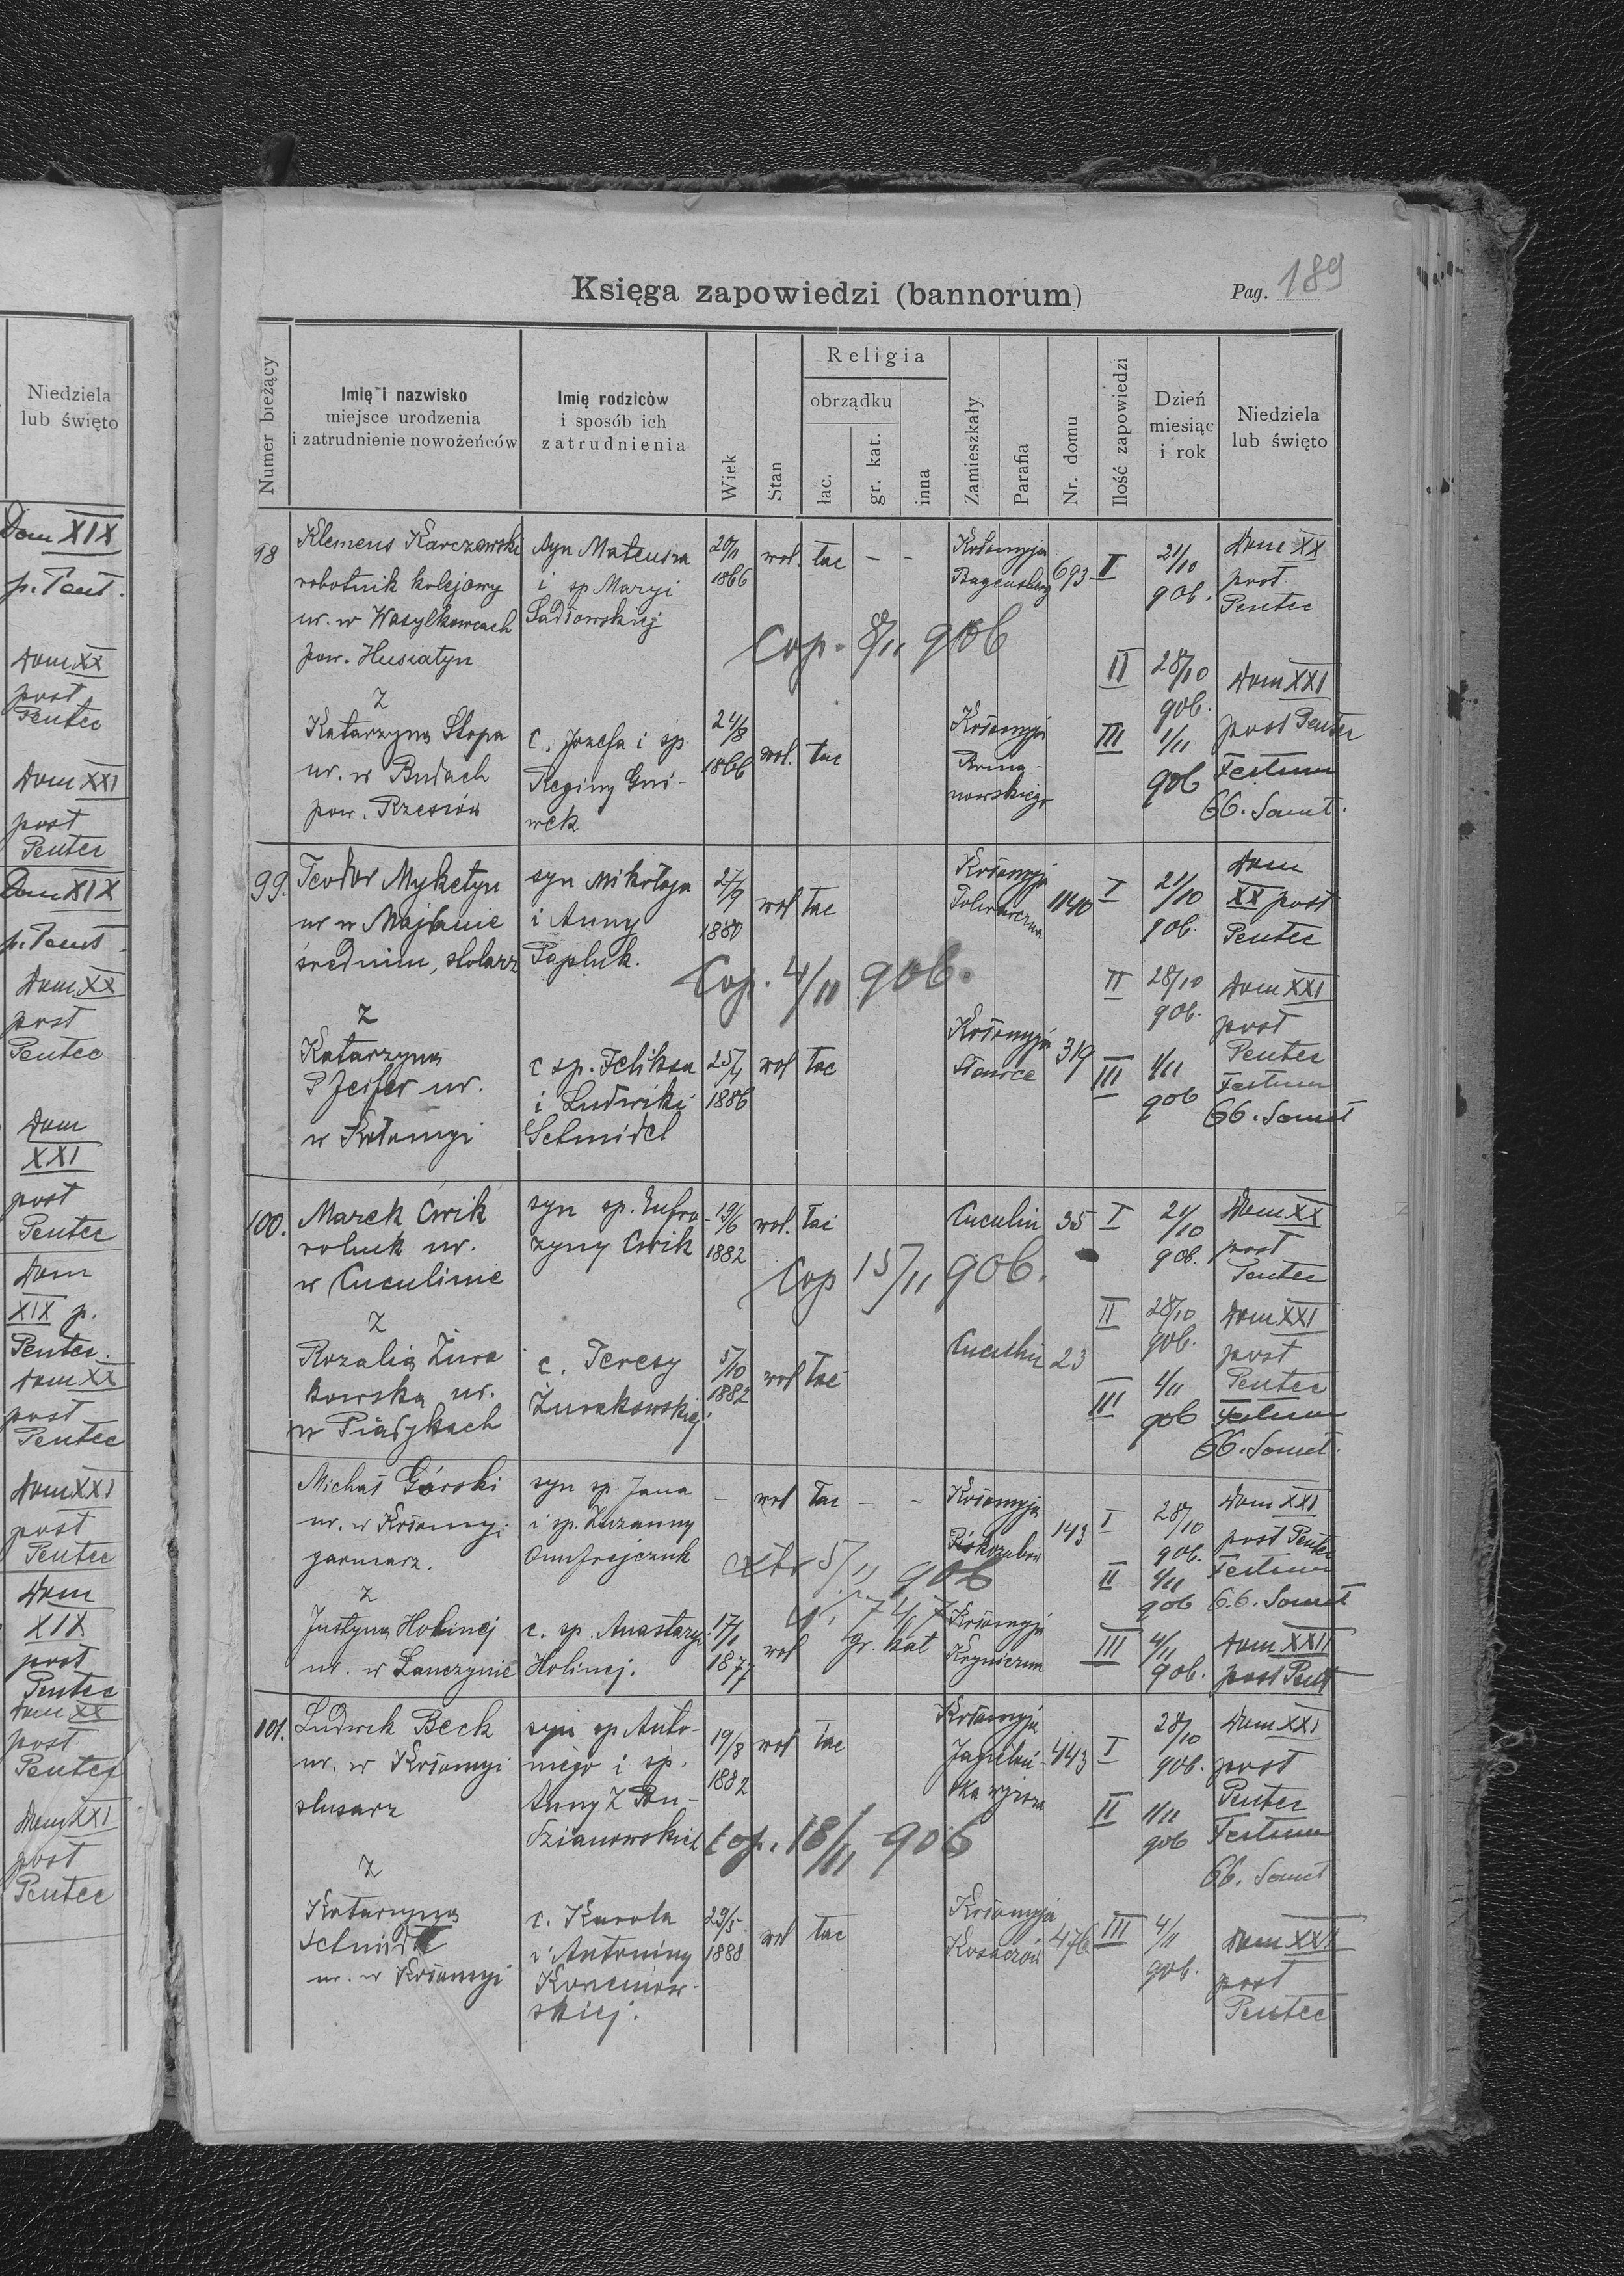 Niedziela
lub święto
Dom XIX
p. Pent.
Dom XX
post
Pentec
Dom XXI
post
Pentec
Dom XIX
p. Pent.
Dom XX
post
Pentec
Dom
XXI
post
Pentec
Dom
XIX p.
Pentec.
Dom XX
post
Pentec
Dom XXI
post
Pentec
Dom
XIX
post
Pentec
Dom XX
post
Pentec
Dom XXI
post
Pentec
Księga zapowiedzi (bannorum)
Pag. 189
Numer bieżący
Imię i nazwisko
miejsce urodzenia
i zatrudnienie nowożeńców
Imię rodziców
i sposób ich
zatrudnienia
Wiek
Stan
Religia
obrządku
łac.
gr. kat.
inna
Zamieszkały
Parafia
Nr. domu
Ilość zapowiedzi
Dzień
miesiąc
i rok
Niedziela
lub święto
98
Klemens Karczewski
robotnik kolejowy
ur. w Wasylkowcach
pow. Husiatyn
syn Mateusza
i sp Maryi
Sadłowskiej
20/11
1866
wol. łac - -
Kołomyja
Bagensberg
693
I 21/10 906. Dom XX
post
Pentec
Cop. 8/11 906
II 28/10 906. Dom XXI
post Pentec
z
Katarzyna Stopa
ur. w Budach
pow. Rzeszów
c. Józefa i sp.
Reginy Gni-
wek
24/8
1866
wol. łac
Kołomyja
Roma-
nowskiego
III 1/11 906 Festum
OO. Sanct.
99.
Teodor Myketyn
ur w Majdanie
średnim, stolarz
syn Mikołaja
i Anny
Papluk.
27/9
1880
wol łac
Kołomyja
1140
I 21/10 906. Dom
XX post
Pentec
Cop. 4/11 906.
II 28/10 906. Dom XXI
post
Pentec
z
Katarzyna
Pfeifer ur.
w Kołomyi
c sp. Feliksa
i Ludwiki
Schmidel
25/4
1886
wol łac
Kołomyja
319
III 1/11 906 Festum
OO. Sanct
100.
Marek Ćwik
rolnik ur.
w Cuculinie
syn sp. Eufro-
zyny Ćwik
19/6
1882
wol. łac
Cuculin 35
I 21/10 906. Dom XX
post
Pentec
Cop 15/11 906.
II 28/10 906. Dom XXI
post
Pentec
z
Rozalia Żura
kowska ur.
w Piadykach
c. Teresy
Żurakowskiej
5/10
1882
wol łac
Cuculin 23
III 1/11 906 Festum
OO. Sanct.
Michał Górski
ur. w Kołomyi
garncarz.
syn sp. Jana
i sp. Zuzanny
Onufrejczuk
- wol łac - -
Kołomyja
143
I 28/10 906. Dom XXI
post Pentec
5/11 906
II 1/11 906 Festum
O.O. Sanct
z
Justyna Holinej
ur. w Łanczynie
c. sp. Anastazyi
Holinej.
17/1
1877
wol gr. kat
Kołomyja
III 4/11 906. Dom XXII
post Pent
101.
Ludwik Beck
ur. w Kołomyi
ślusarz
syn sp Anto-
niego i sp.
Anny z Bou-
dzianowskich
19/8
1882
wol łac
Kołomyja
Jagielloń-
ska wyższa
443
I 28/10 906. Dom XXI
post
Pentec
II 1/11 906 Festum
OO. Sanct
Cop. 18/11 906
z
Katarzyna
Schmidt
ur. w Kołomyi
c. Karola
i Antoniny
Korzeniow-
skiej.
29/5
1888
wol łac
Kołomyja
Kosaczów
476
III 4/11 906. Dom XXII
post
Pentec